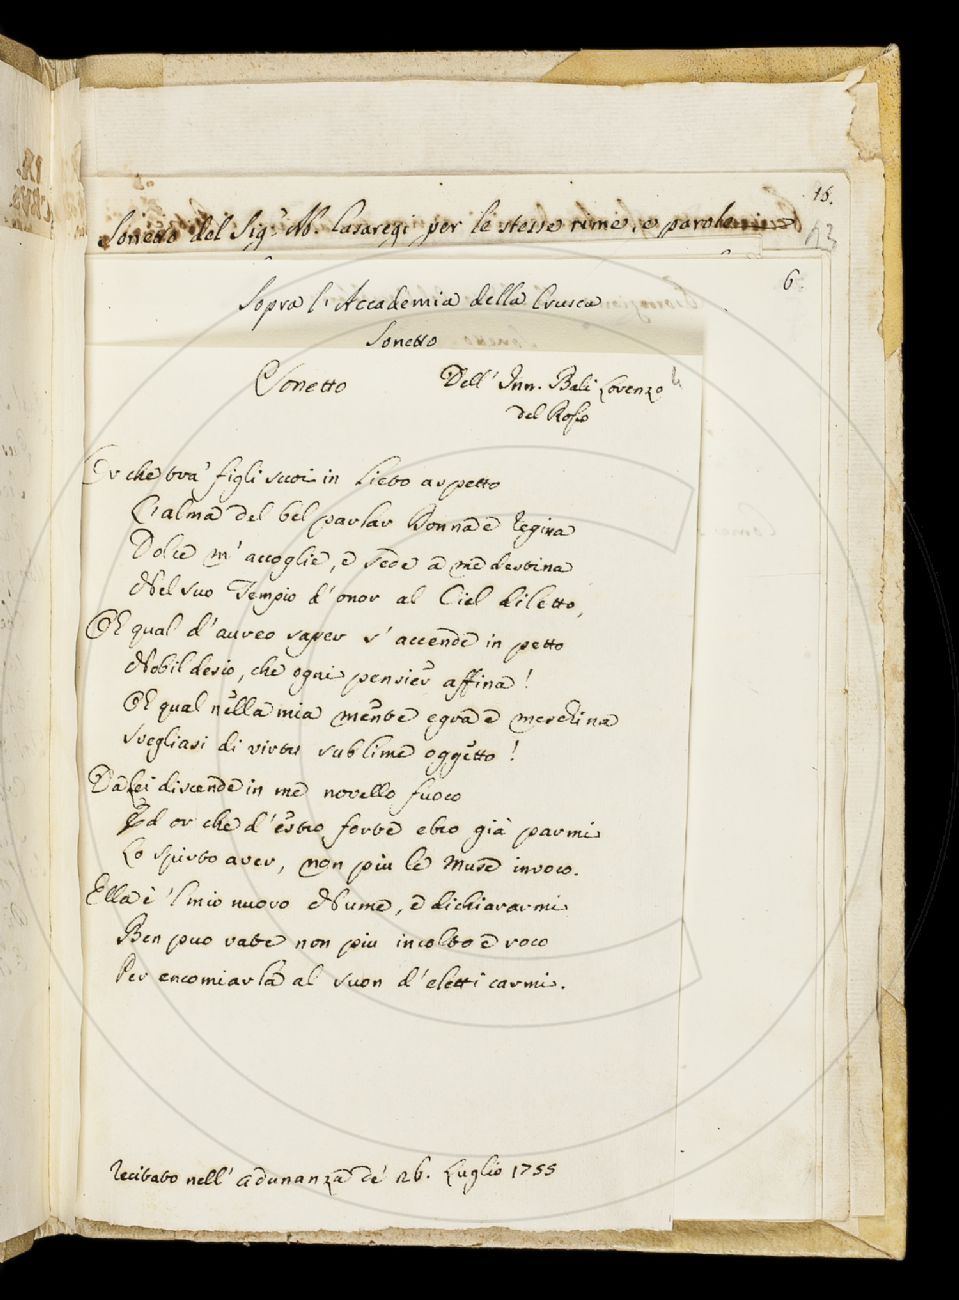 16.
Sonetto del Sig.r Ab. Casaregi per le stesse rime, e parole
43
6
Sopra l'Accademia della Crusca
Sonetto
Sonetto
Dell' Inn. Balì Lorenzo
del Rosso
Or che tra' figli suoi in lieto aspetto
L'alma del bel parlar Donna e Regina
Dolce m'accoglie, e sede a me destina
Nel suo Tempio d'onor al Ciel diletto,
Oh qual d'aureo saper s'accende in petto
Nobil desio, che ogni pensier affina!
Oh qual nella mia mente egra e meschina
svegliasi di virtù sublime oggetto!
Da Lei discende in me novello fuoco
Ed or che d'estro forte ebro già parmi
Lo spirto aver, non piu le Muse invoco.
Ella è 'l mio nuovo Nume, e dichiararmi
Ben puo vate non piu incolto e roco
Per encomiarla al suon d'eletti carmi.
Recitato nell' adunanza de' 26. Luglio 1755